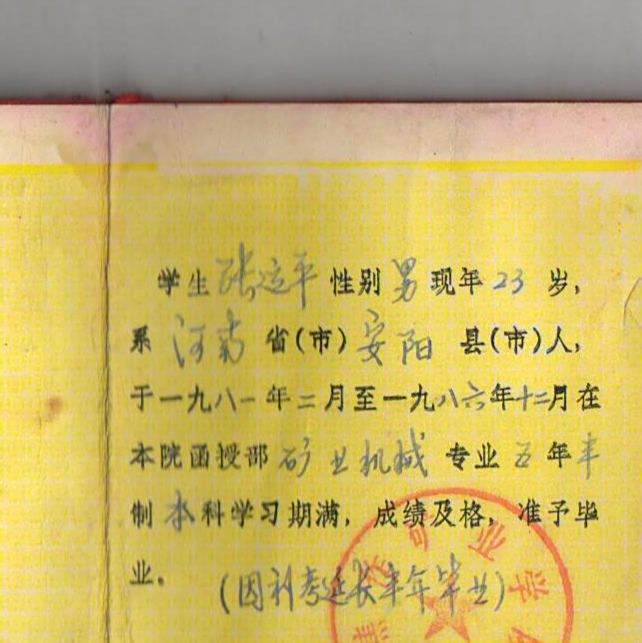 学生张运平性别男现年23岁,
系河南省(市)安阳县(市)人,
于一九八一年二月至一九八六年十二月在
本院函授部矿业机械专业五年半
制本科学习期满,成绩及格,准予毕
业。(因补考延长半年毕业)
业学